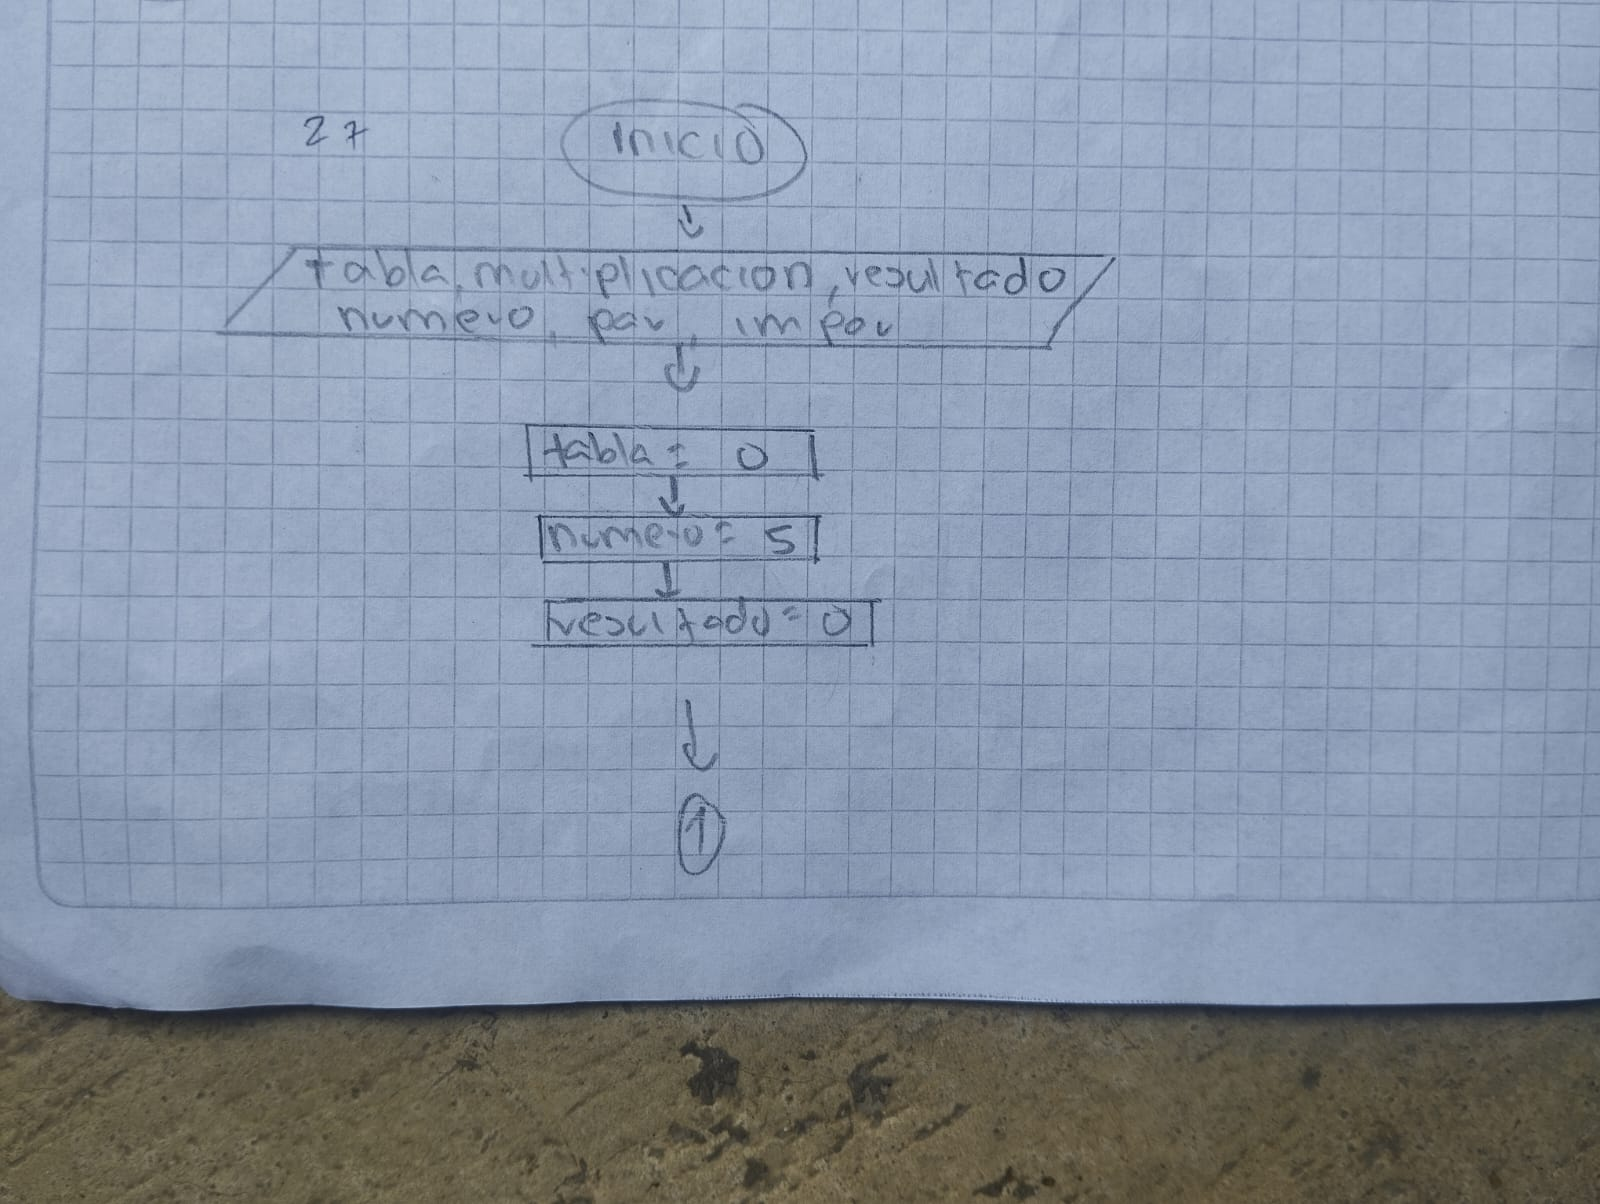 27
inicio
tabla, multiplicacion, resultado
numero, par, impar
tabla = 0
numero = 5
resultado = 0
1